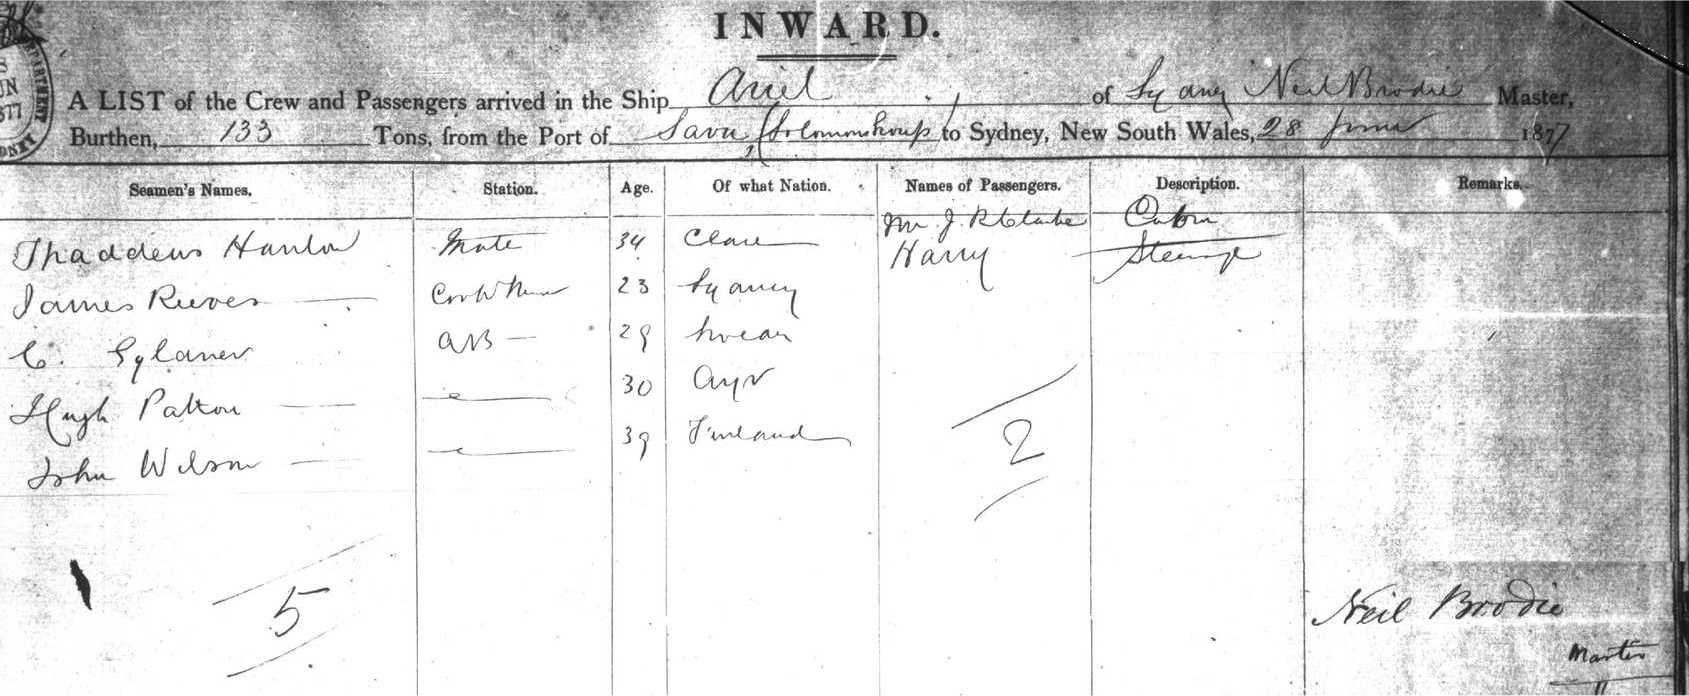 INWARD.
A LIST of the Crew and Passengers arrived in the Ship Ariel of Sydney Neil Brodie Master,
Burthen, 133 Tons, from the Port of Savu (Solomon Group) to Sydney, New South Wales, 28 June 1877
Seamen's Names. Station. Age. Of what Nation. Names of Passengers. Description. Remarks.
Mr J. R Clarke Cabin
Thaddeus Hanlon Mate 34 Clare Harry Steerage
James Reeves Cook 23 Sydney
C. AB 29
Hugh Patton 30 Ayr
John Wilson 39 Finland
2
5
Neil Brodie
Master